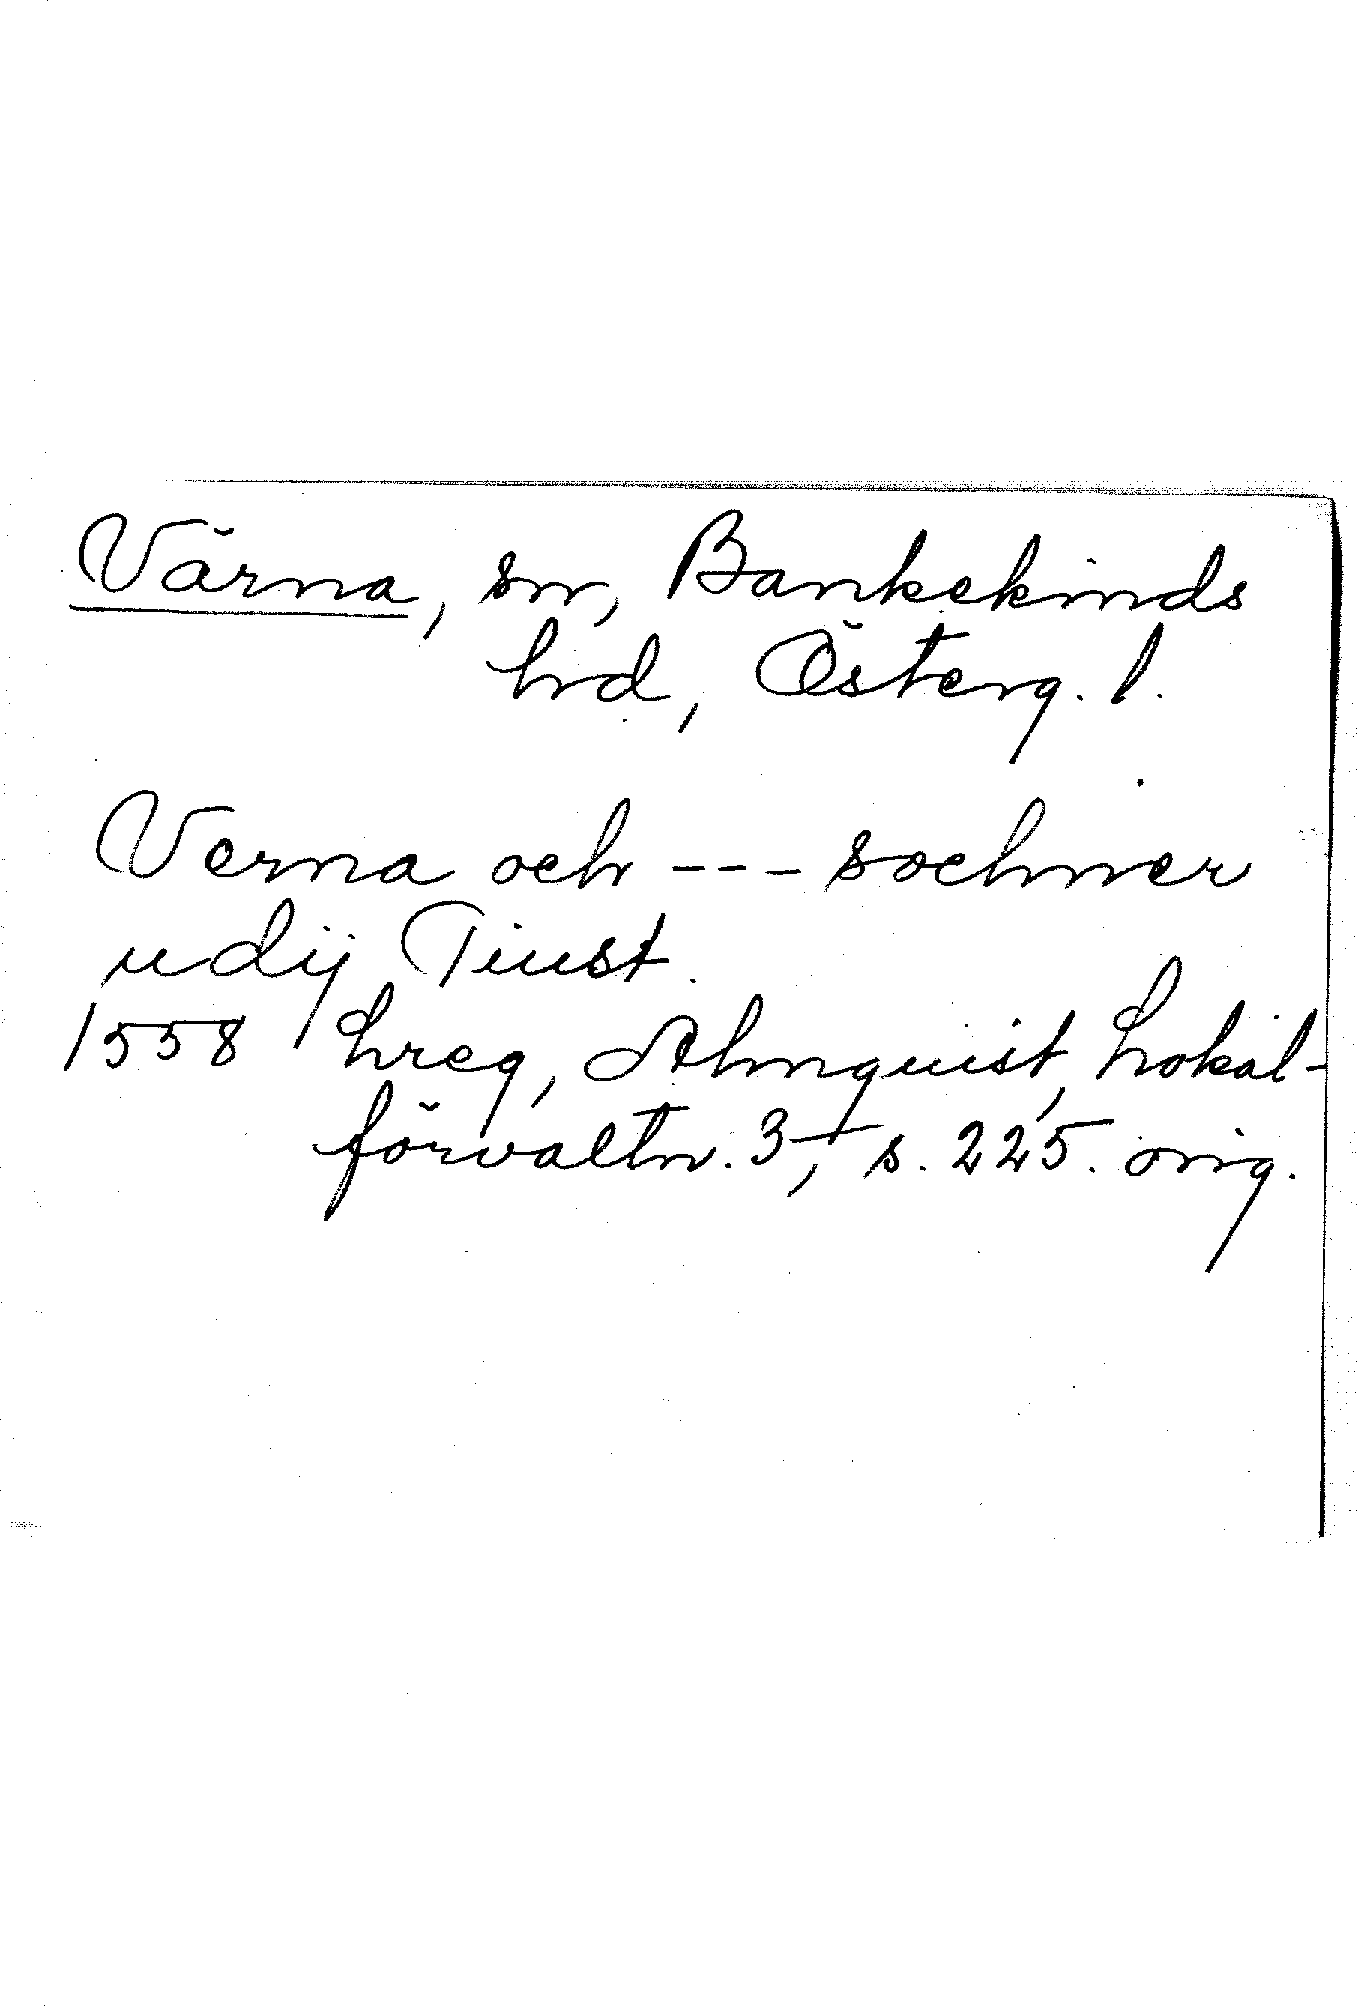 Värna, sn, Bankekinds
hrd, Österg. l.
Verna och --- sochner
udij Tiust.
1558 hreg, Almquist, Lokal-
förvaltn. 3, s. 225. orig.